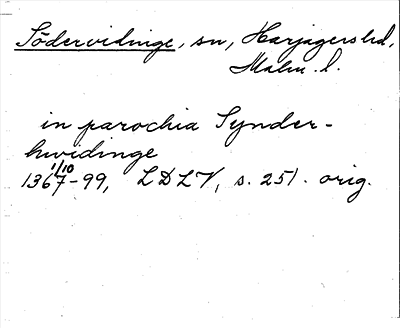 Södervidinge, sn, Harjagers hd,
Malm. l.
in parochia Synder-
hvidinge
1/10
1367-99, LDLV, s. 251. orig.